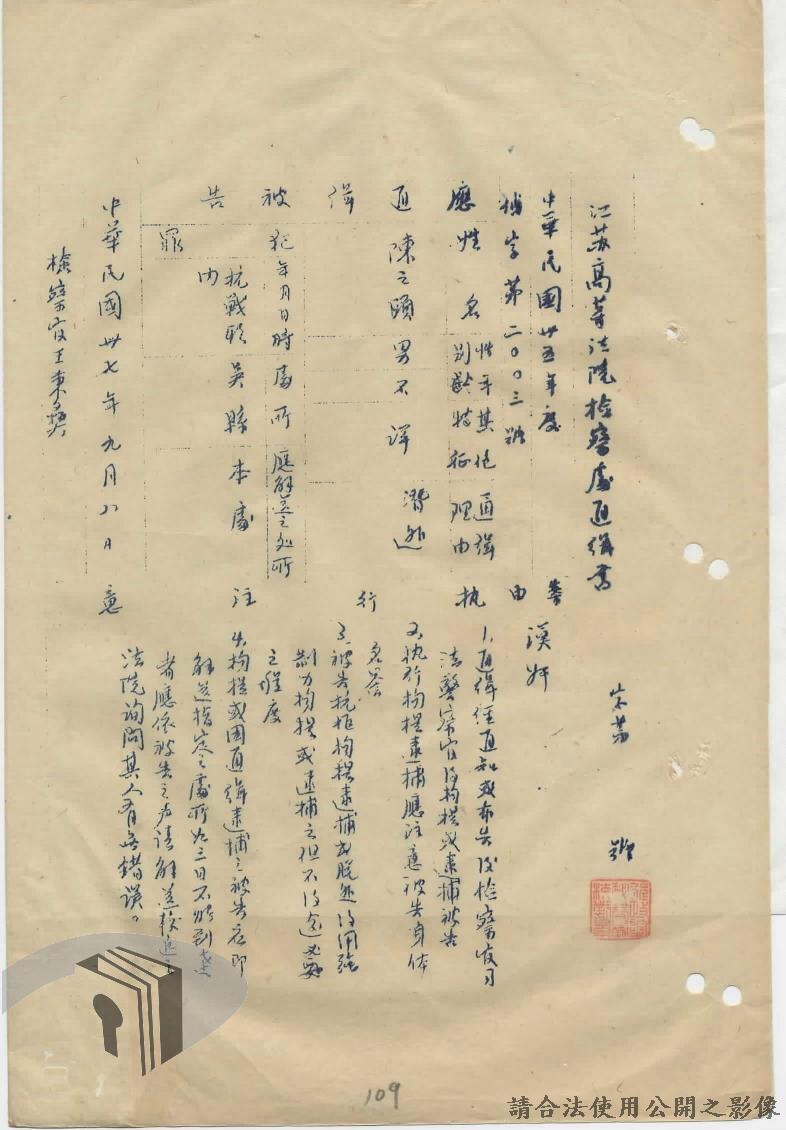 江苏高等法院检察處通缉書
字第 號
中華民國卅五年度
捕字第二〇〇三號
應姓名性别年齡其他特征通缉理由
通陳之頤男不詳潜逃
缉
被犯年月日時處所應解送之处所
抗戰期内吳縣本處
告罪
中華民國卅七年九月八日
檢察官王秉彝
案由漢奸
执行注意
1、通缉经通知或布告後检察官司
法警察官得拘提或逮捕被告
2、执行拘提逮捕應注意被告身体
名誉
3、被告抗拒拘提逮捕或脱逃得用强
制力拘提或逮捕之但不得逾必要
之程度
4、拘提或因通缉逮捕之被告應即
解送指定之處所如三日不能到達
者應依被告之声請解送较近之
法院询問其人有無錯误。
109
請合法使用公開之影像